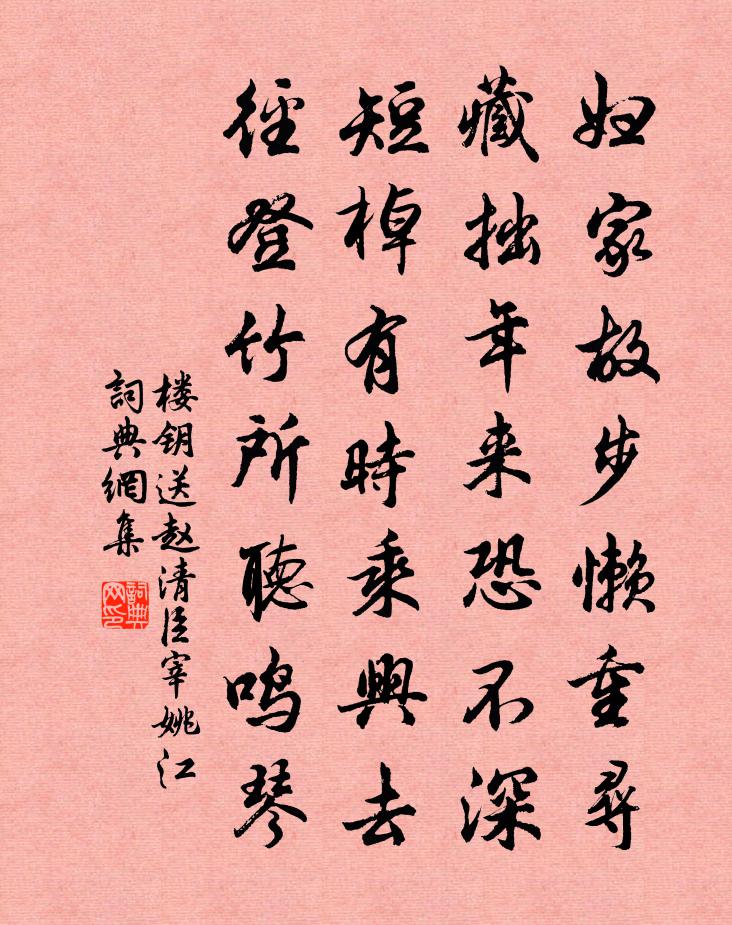 妇家故步懒重寻
藏拙年来恐不深
短棹有時乘興去
径登竹所聽鸣琴
楼钥送赵清臣宰姚江
詞典網集
詞典
网印